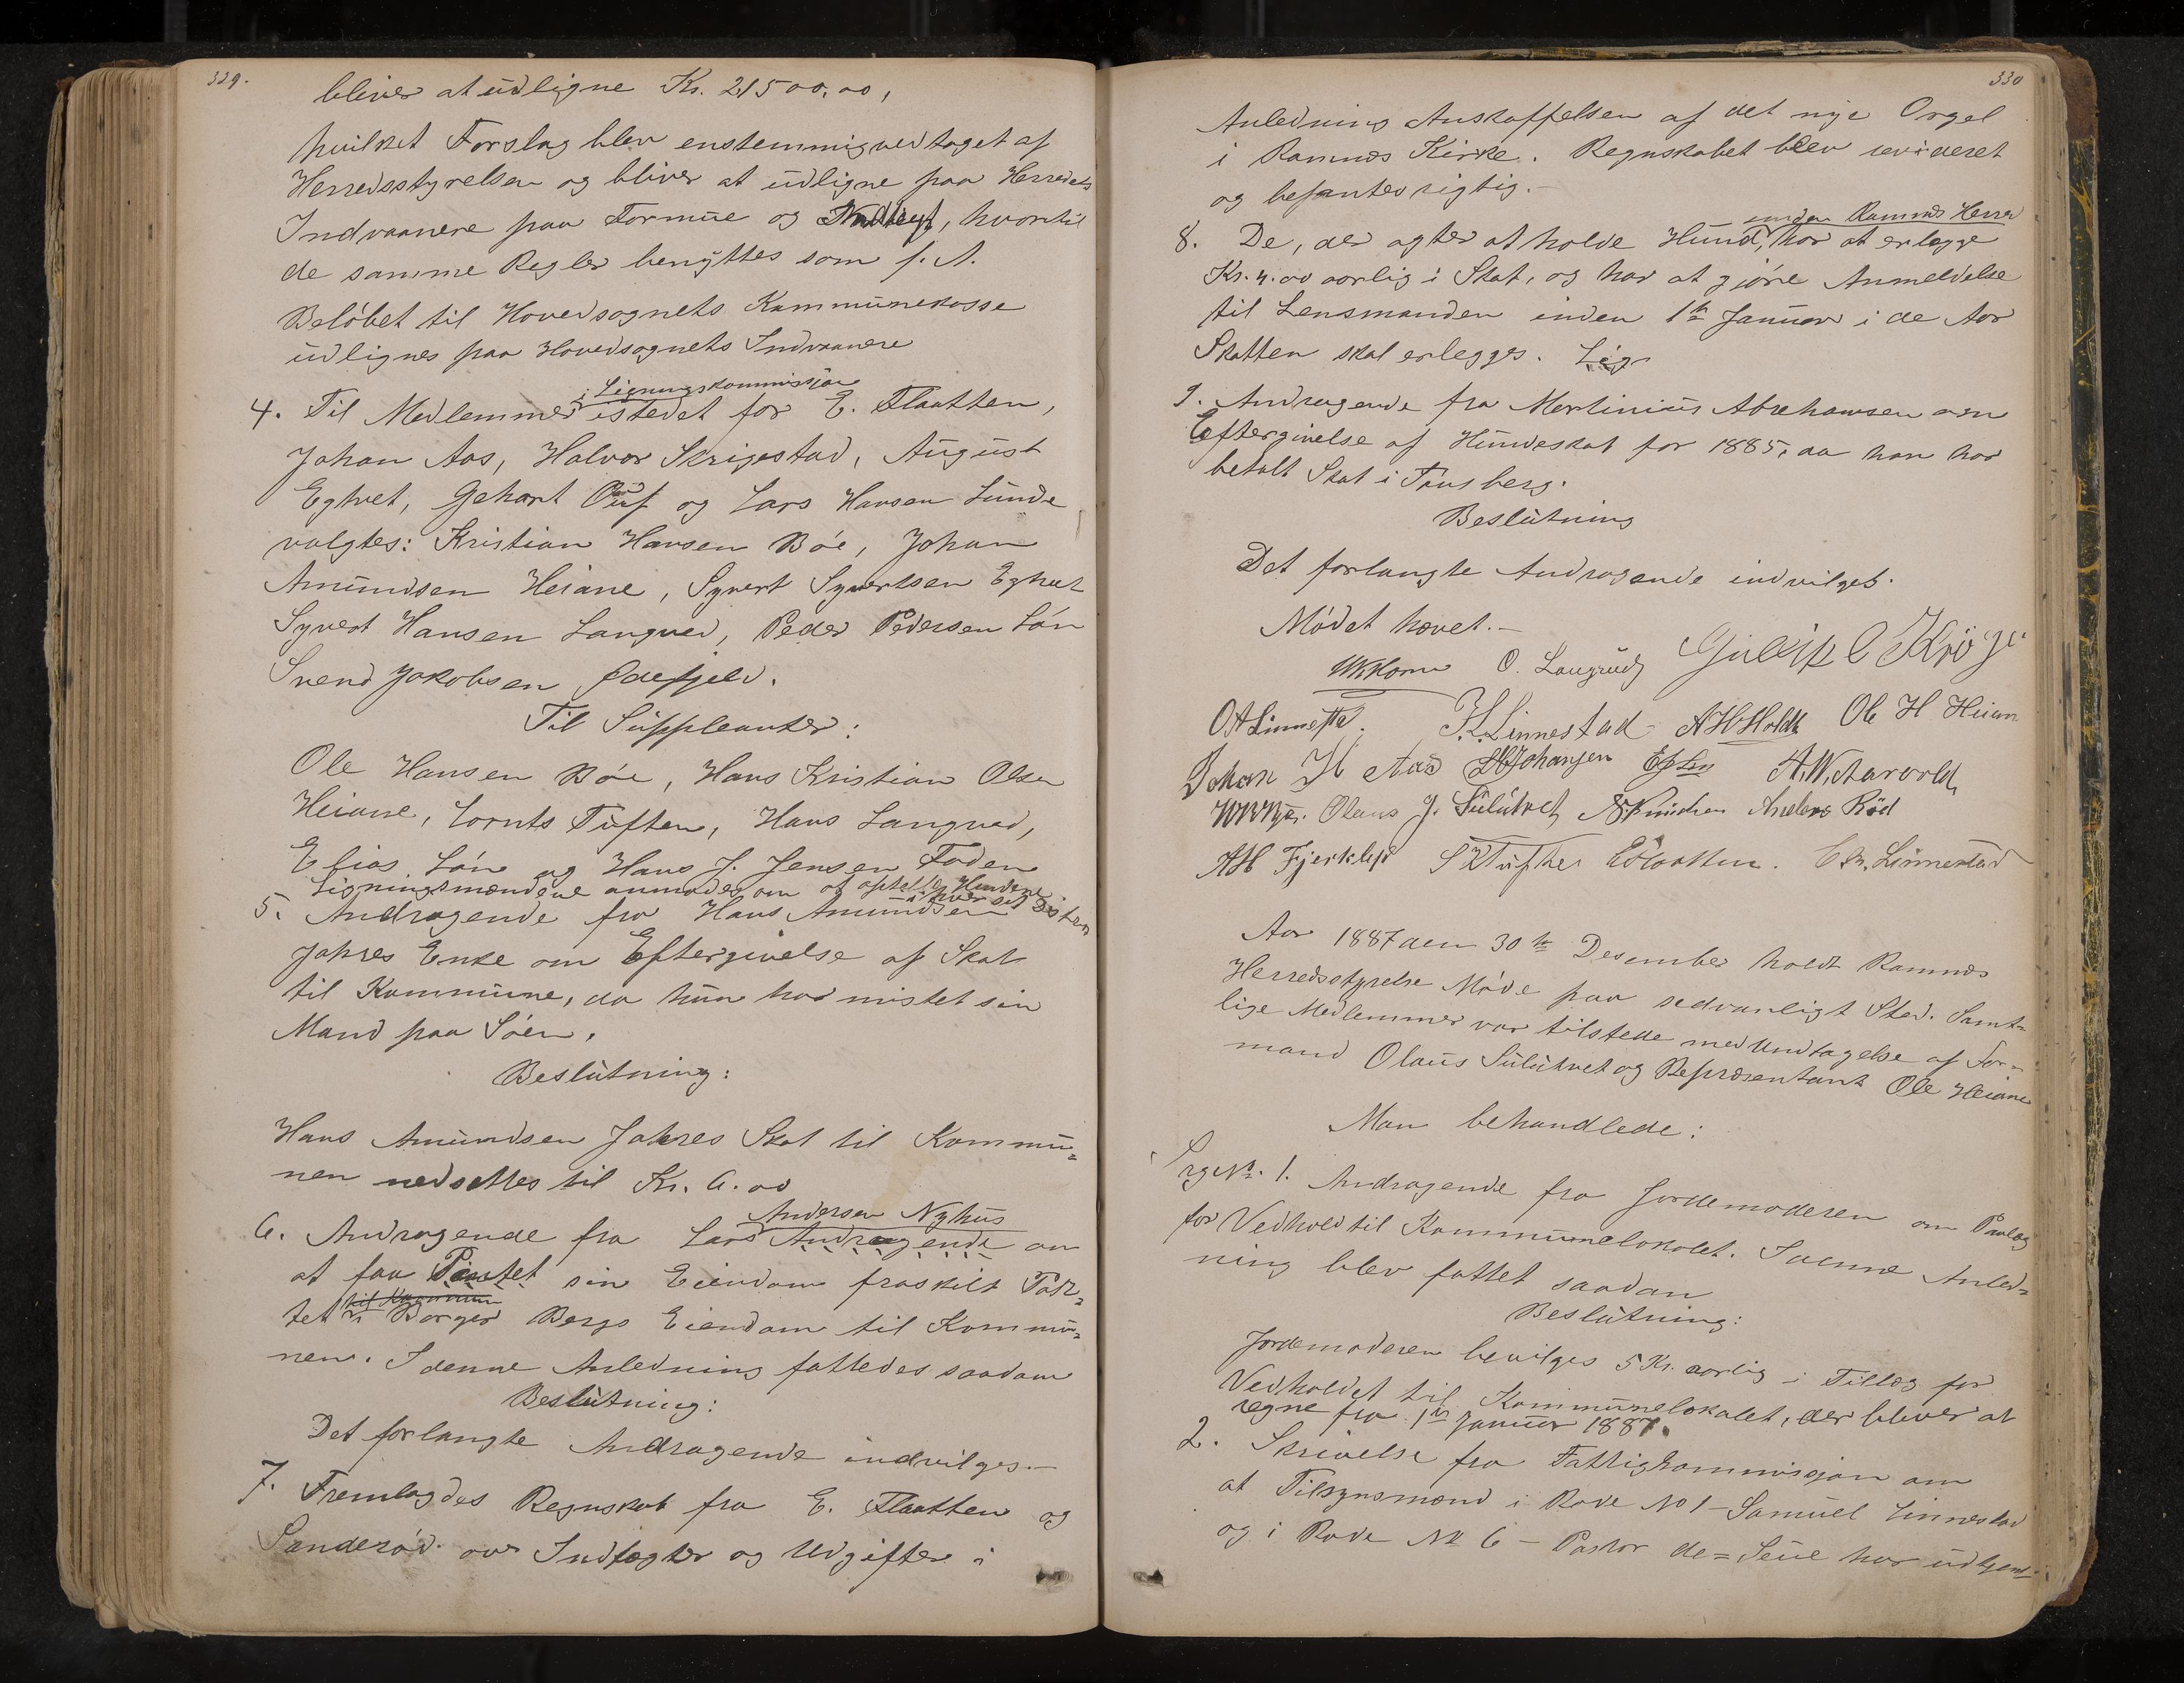 329.
bliver at udligne Kr. 21500,00,
hvilket Forslag blev enstemmig vedtaget af
Herredsstyrelsen og bliver at udligne paa Herredets
Indvaanere paa Formue og Indtægt, hvortil
de samme Regler benyttes som f. A.
Beløbet til Hovedsognets Kommunekasse
udlignes paa Hovedsognets Indvaanere
i Ligningskommissjon
4. Til Medlemmer istedet for E. Flaatten,
Johan Aas, Halvor Skrigestad, August
Eghvet, Gehart Ruf og Lars Hansen Lunde
valgtes: Kristian Hansen Bøe, Johan
Amundsen Heiane, Syvert Syvertsen Eghvet
Syvert Hansen Langved, Peder Pedersen Løn
Svend Jakobsen Ødefjeld.
Til Suppleanter:
Ole Hansen Bøe, Hans Kristian Olsen
Heiane, Lornts Tuften, Hans Langved,
Elias Løn og Hans J. Jensen Foden
Ligningsmændene anmodes om at optelle Hundene
i hver sit Distrikt
5. Andragende fra Hans Amundsen
Jahres Enke om Eftergivelse af Skat
til Kommune, da hun har mistet sin
Mand paa Søen.
Beslutning:
Hans Amundsen Jahres Skat til Kommu=
nen nedsettes til Kr. 6.00
Andersen Nyhus
6. Andragende fra Lars Andragende om
at faa sin Eiendom fraskilt Pak=
til Kommun
tet i Borger Bergs Eiendom til Kommu=
nen. I denne Anledning fattedes saadan
Beslutning:
Det forlangte Andragende indvilges.—
7. Fremlagdes Regnskab fra E. Flaatten og
Sanderød over Indtægter og Udgifter i
330
Anledning Anskaffelsen af det nye Orgel
i Ramnæs Kirke. Regnskabet blev revideret
og befantes rigtig.—
inden Ramnæs Herred
8. De, der agter at holde Hund, har at erlægge
Kr. 4.00 aarlig i Skat, og har at gjøre Anmeldelse
til Lensmanden inden 1te Januar i de Aar
Skatten skal erlegges. Lig
9. Andragende fra Martinius Abrehamsen om
Eftergivelse af Hundeskat for 1885, da han har
betalt Skat i Tønsberg.
Beslutning
Det forlangte Andragende indvilges.
Mødet hævet.—
O. Langrud
O A Linnestd. H. Linnestad A H Holdt Ole H Heian
Johan H Aas Johansen A. W. Aarvold
Olaus J. Sulutvet Anders Rød
A H Fjerklep S Tufte E Flaatten. Chr. Linnestad
Aar 1887 den 30te Desember holdt Ramnæs
Herredsstyrelse Møde paa sedvanligt Sted. Samt=
lige Medlemmer var tilstede med Undtagelse af For=
mand Olaus Sulutvet og Repræsentant Ole Heiane
Man behandlede:
Sag No. 1. Andragende fra Jordemoderen om Paalæg
for Vedhold til Kommunelokalet. I denne Anled=
ning blev fattet saadan
Beslutning:
Jordemoderen bevilges 5 Kr. aarlig i Tillæg for
Vedholdet til Kommunelokalet, der bliver at
regne fra 1te Januar 1887.
2. Skrivelse fra Fattigkommissjon om
at Tilsynsmænd i Rode No 1 – Samuel Linnestad
og i Rode No 6 – Pastor de=Seue har udtjent